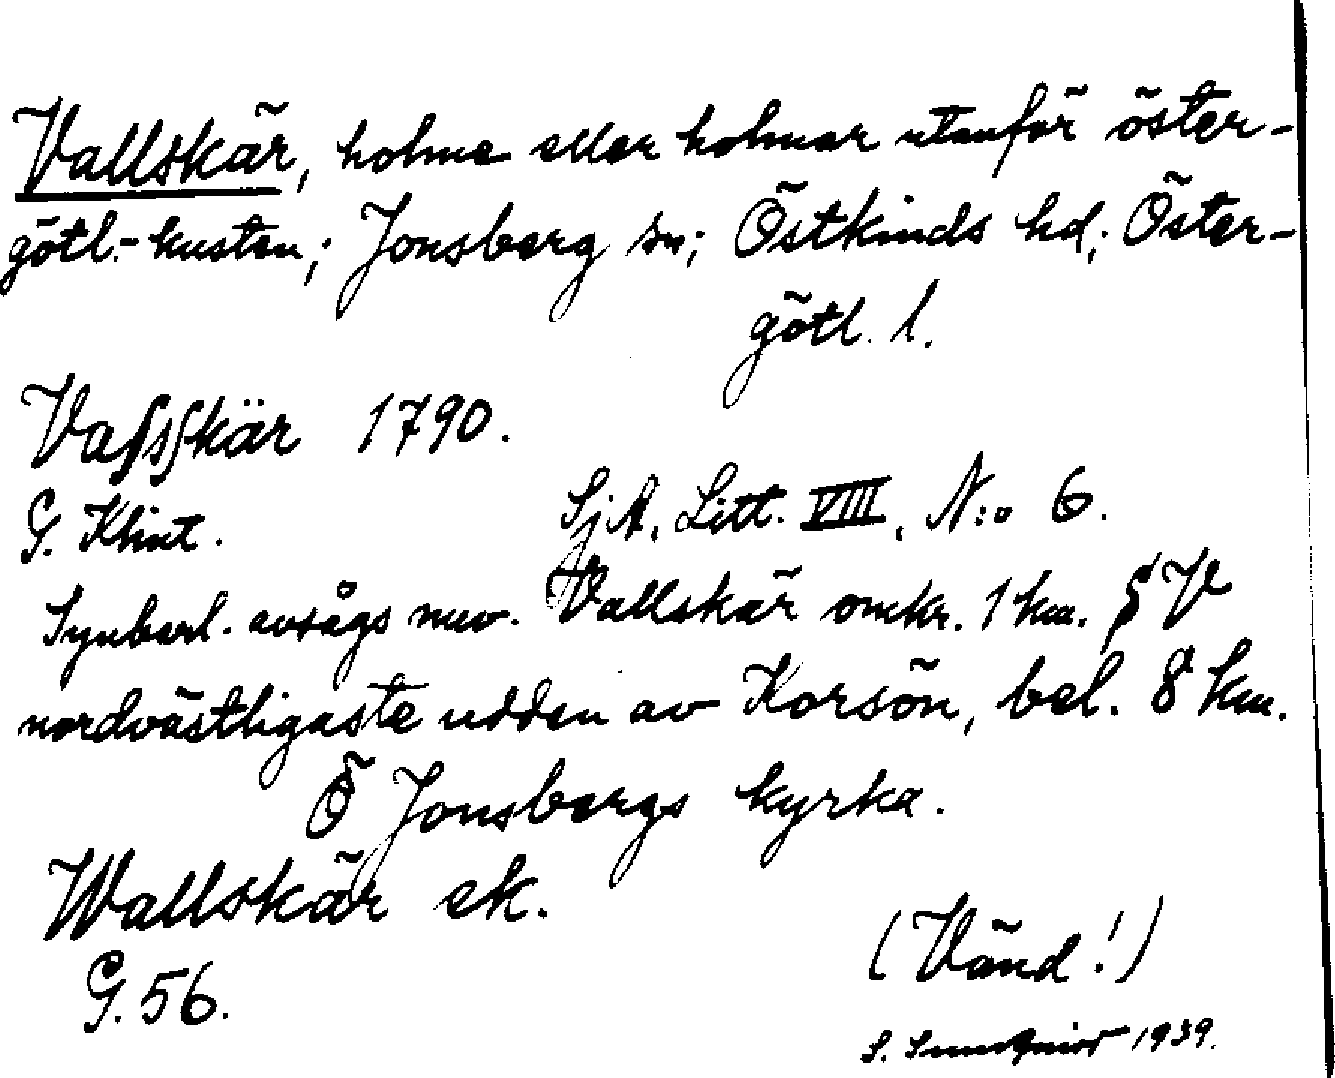 Vallskär, holme eller holmar utanför öster-
götl.-kusten; Jonsberg sn; Östkinds hd; Öster-
götl. l.
Vaſsſkär 1790.
G. Klint. SjA. Litt. VIII, N:o 6.
Synbarl. avsågs nuv. Vallskär omkr. 1 km. V
nordvästligaste udden av Korsön, bel. 8 km.
Ö Jonsbergs kyrka.
Wallskär ek.
G. 56. (Vänd!)
S. Sundqvist 1939.